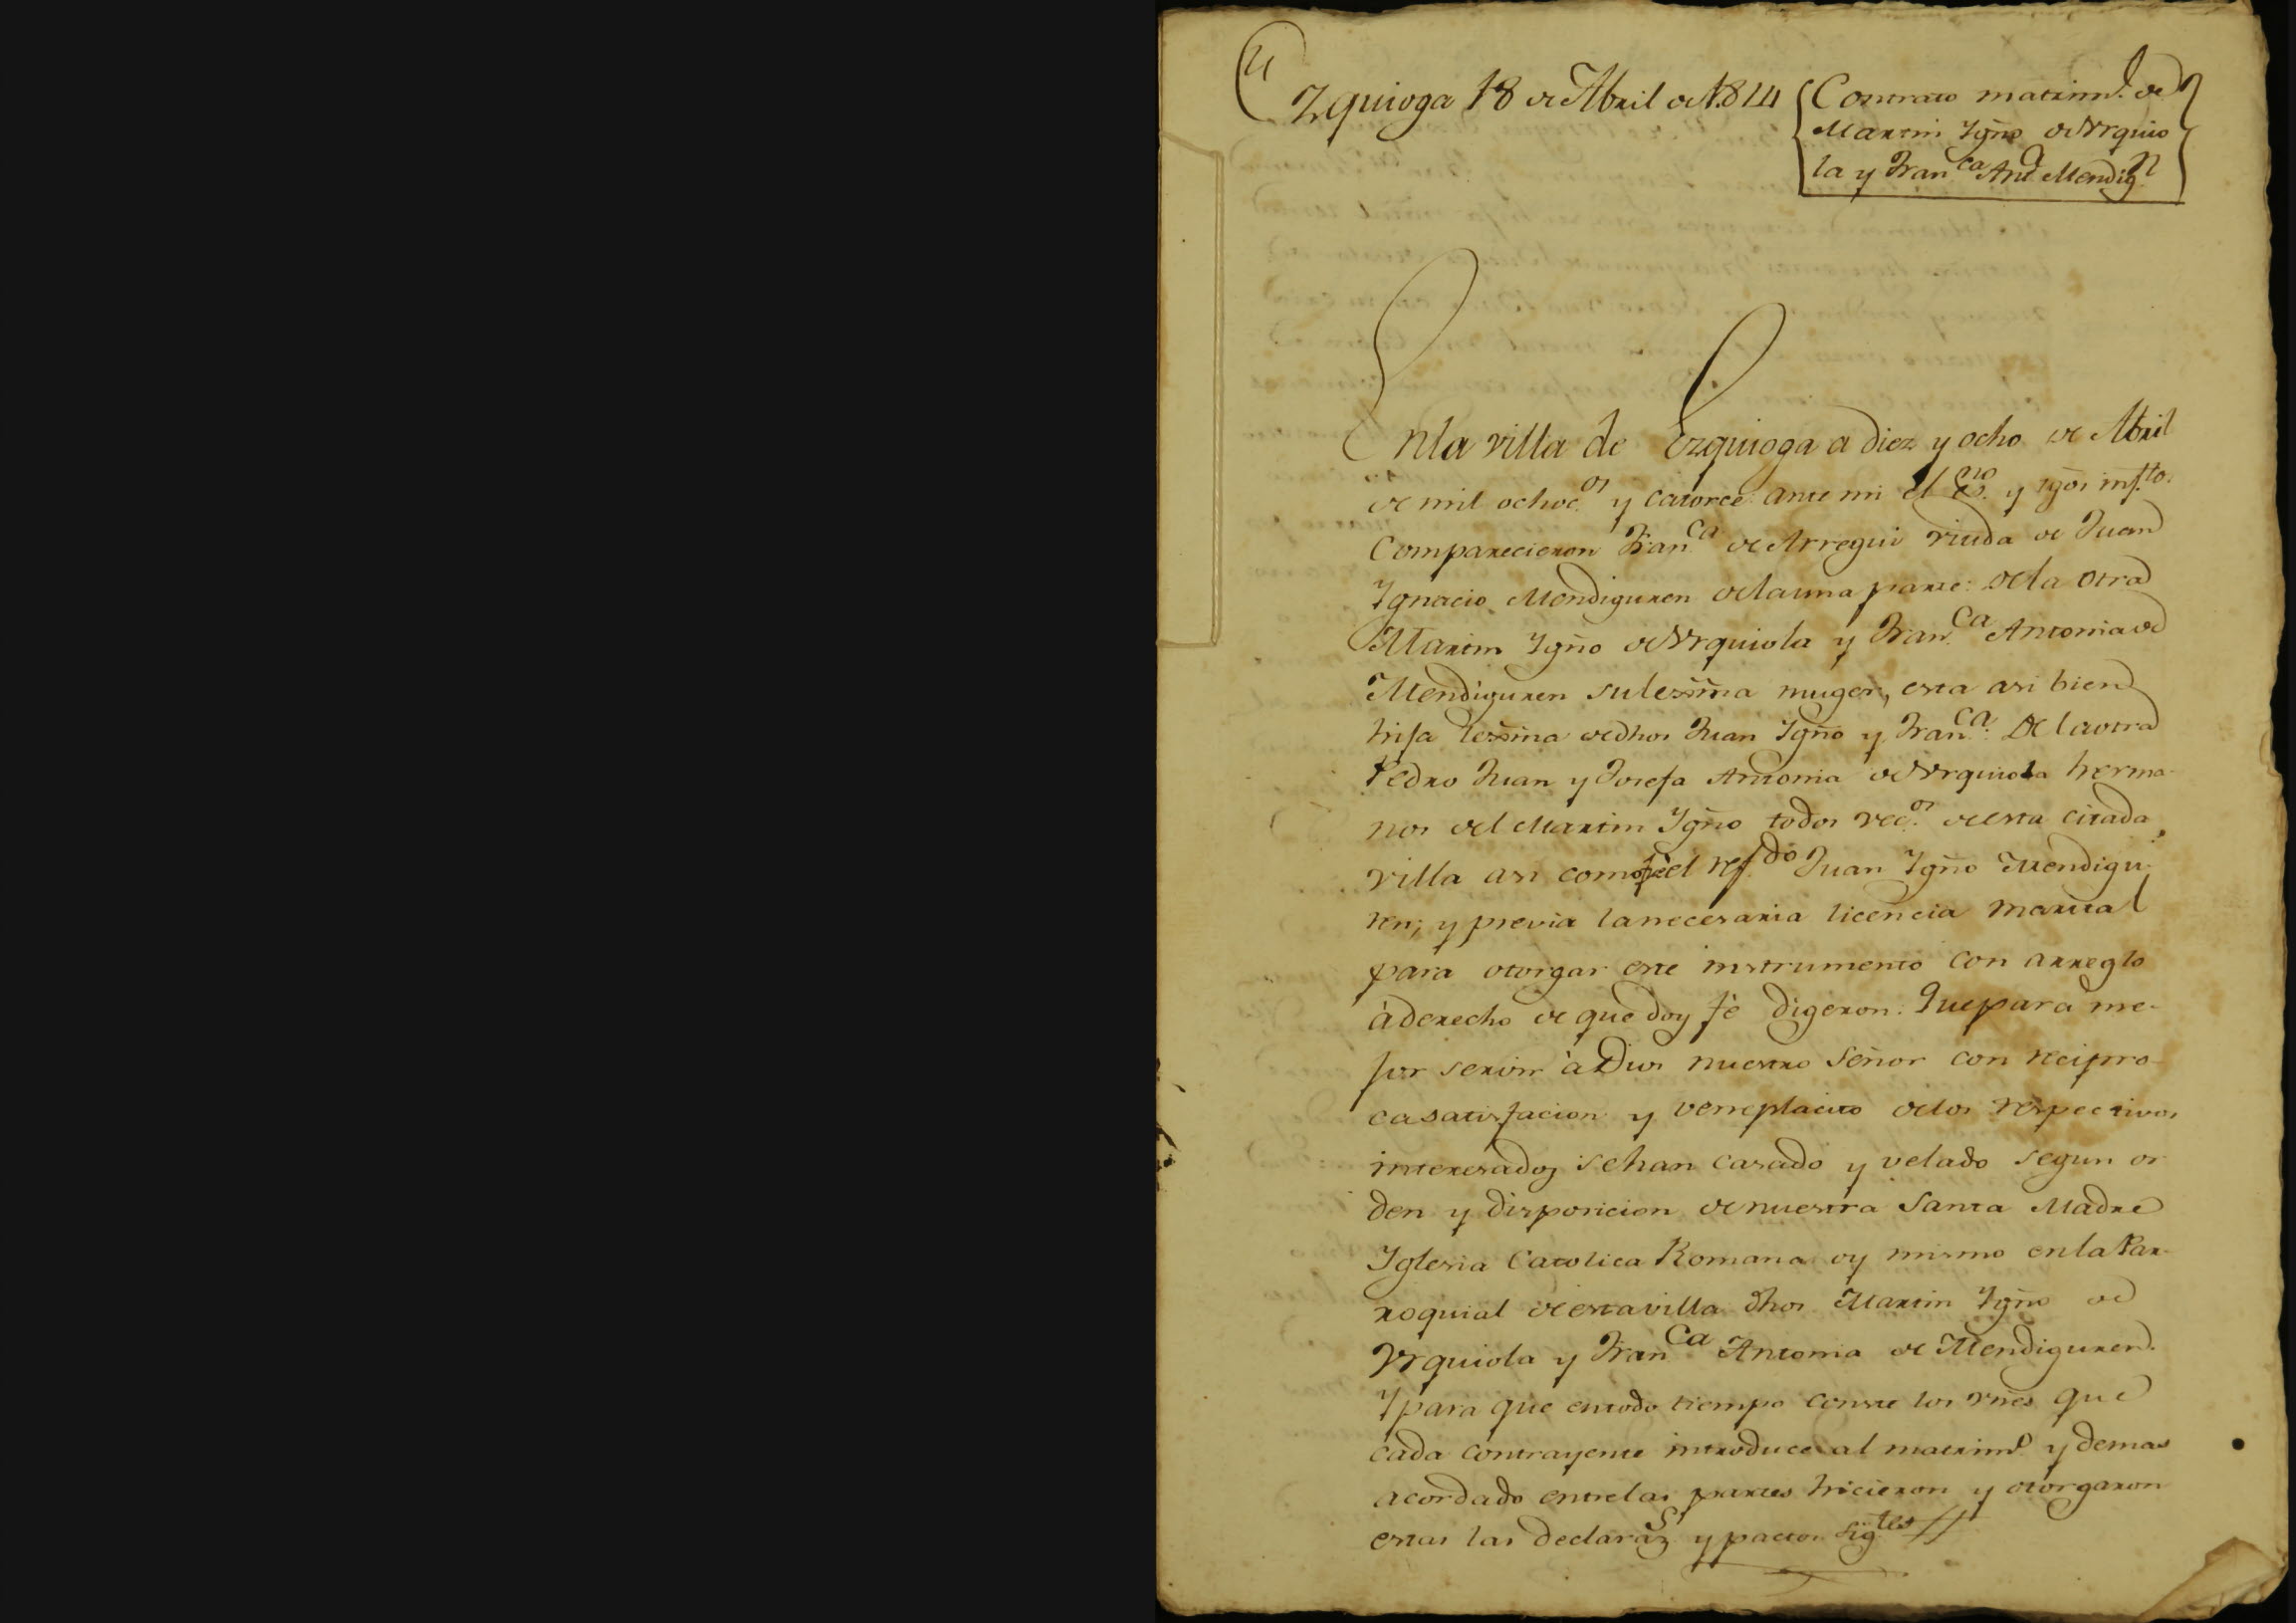 Yzquioga 18 de Abril de 1814
Contrato matrim.l de
Martin Ygño de Vrquio
la y Fran.ca Ant.a Mendig.n
En la villa de Ezquioga a diez y ocho de Abril
de mil ochoc.os y catorce ante mi el Es.no y tgos inf.tos
Comparecieron Fran.ca de Arregui viuda de Juan
Ygnacio Mendiguren dela una parte: dela otra
Martin Ygño de Vrquiola y Fran.ca Antonia de
Mendiguren su lexma muger, esta asi bien
hija lexma de dhos Juan Ygño y Fran.ca: De la otra
Pedro Juan y Josefa Antonia de Vrquiola herma-
nos del Martin Ygño todos vec.os de esta citada
villa asi como el ref.do Juan Ygño Mendigu-
ren; y previa la necesaria licencia marital
para otorgar este instrumento con arreglo
à derecho de que doy fè digeron: Que para me-
jor servir à Dios nuestro Señor con recipro-
ca satisfacion y veneplacito delos respectivos
interesados se han casado y velado segun or
den y disposicion de nuestra Santa Madre
Yglesia Catolica Romana oy mismo en la Par-
roquial de esta villa dhos Martin Ygño de
Vrquiola y Fran.ca Antonia de Mendiguren.
Y para que en todo tiempo conste los vnes que
cada contrayente introduce al matrim.o y demas
acordado entre las partes hicieron y otorgaron
estas las declaraz.s y pactos sig.tes //